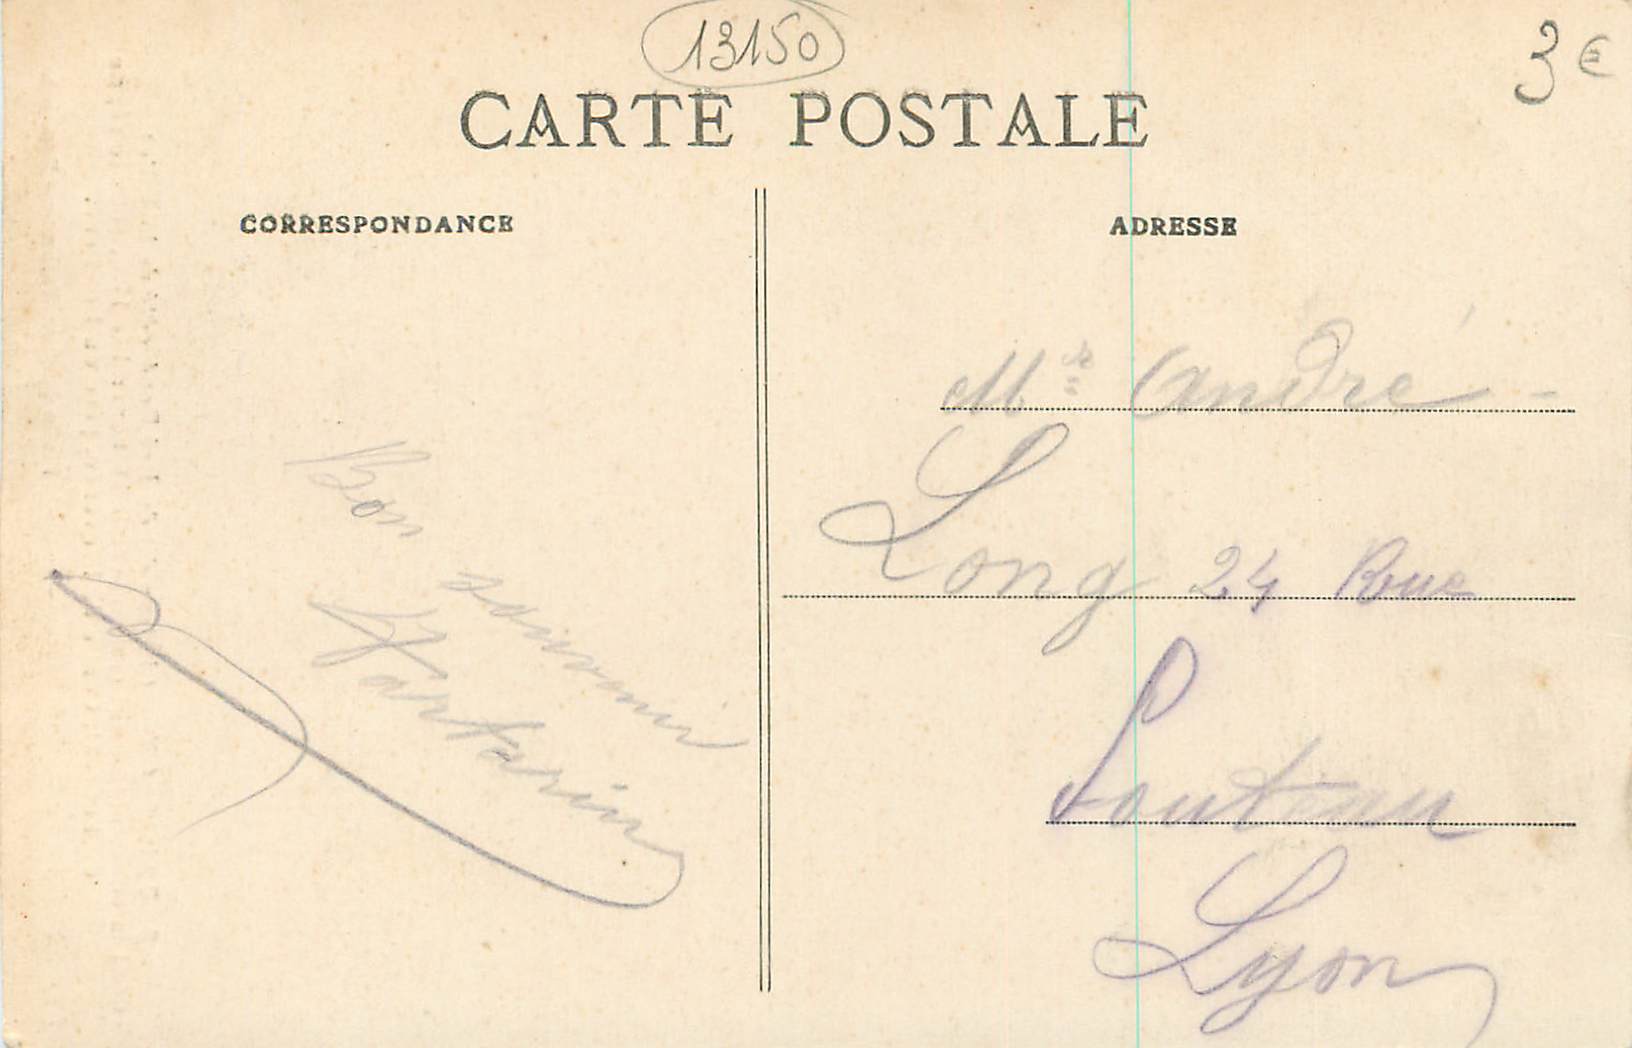 13150
3 €
CARTE POSTALE
CORRESPONDANCE
ADRESSE
Bon souvenir
Mr André
Long 24 Rue
Pouteau
Lyon